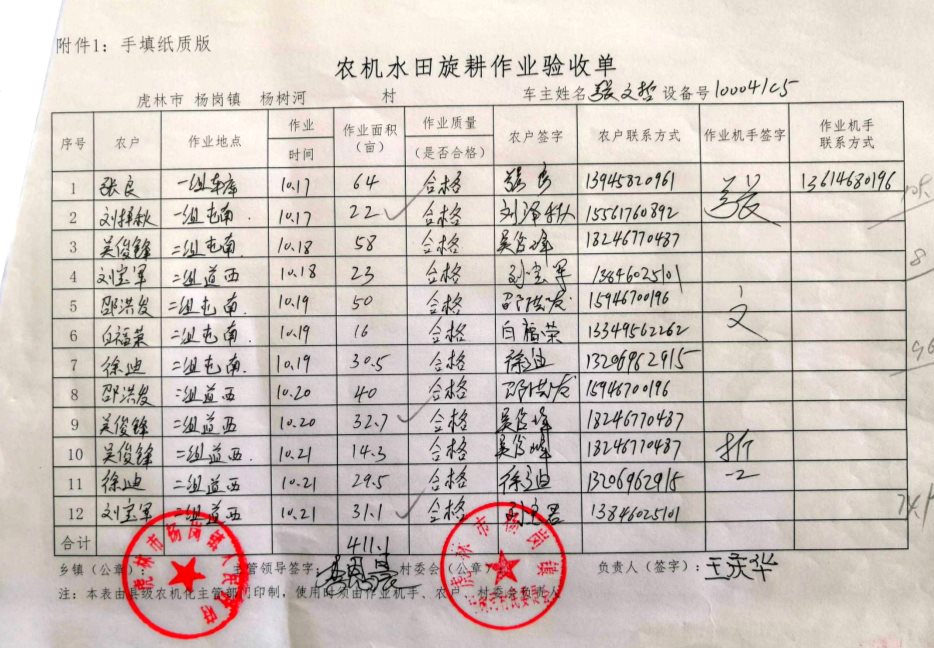 附件1：手填纸质版
农机水田旋耕作业验收单
虎林市 杨岗镇 杨树河 村 车主姓名 张文哲 设备号 100041C5
序号 农户 作业地点 作业时间 作业面积（亩） 作业质量（是否合格） 农户签字 农户联系方式 作业机手签字 作业机手联系方式
1 张良 一组车库 10.17 64 合格 张良 13945820961 张 13614680196
2 一组屯南 10.17 22 合格 15561760892
3 吴俊锋 二组屯南 10.18 58 合格 18246770487
4 刘宝军 二组道西 10.18 23 合格 刘宝军 13846025101
5 邵洪发 二组屯南 10.19 50 合格 邵洪发 15946700196 文
6 白福荣 二组屯南 10.19 16 合格 白福荣 13349562262
7 徐迪 二组屯南 10.19 30.5 合格 徐迪 13206962915
8 邵洪发 二组道西 10.20 40 合格 邵洪发 15946700196
9 吴俊锋 二组道西 10.20 32.7 合格 18246770487
10 吴俊锋 二组道西 10.21 14.3 合格 18246770487 折
11 徐迪 二组道西 10.21 29.5 合格 徐迪 13206962915
12 刘宝军 二组道西 10.21 31.1 合格 13846025101
合计 411.1
乡镇（公章）： 主管领导签字： 村委会（公章） 负责人（签字）：王庆华
注：本表由县级农机化主管部门印制，使用时须由作业机手、农户、村委会负责人
虎林市杨岗镇人民政府
虎林市杨岗镇